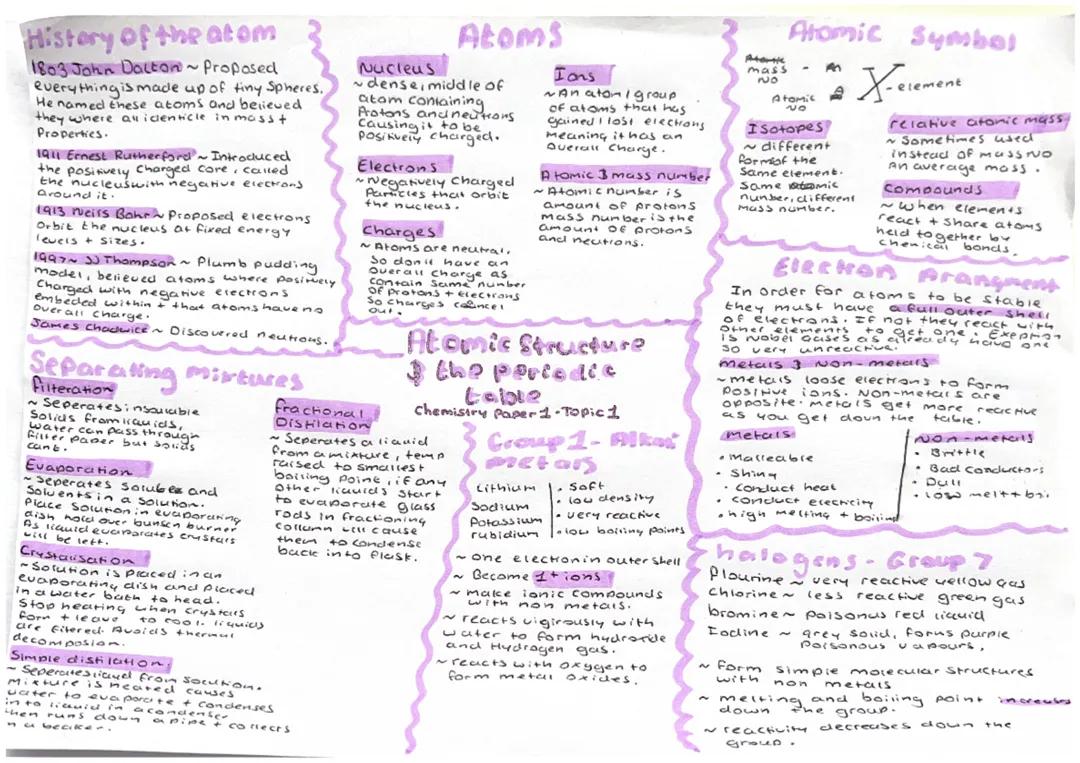 History of the atom
1803 John Dalton ~ Proposed
everything is made up of tiny spheres.
He named these atoms and believed
they where all identicle in mass +
Properties.
1911 Ernest Rutherford ~ Introduced
the positively charged core, called
the nucleus with negative electrons
around it.
1913 Neils Bohr ~ Proposed electrons
orbit the nucleus at fixed energy
levels + sizes.
1997 ~ JJ Thompson ~ Plumb pudding
model, believed atoms where positively
charged with negative electrons
embeded within + that atoms have no
overall charge.
James Chadwice ~ Discovered neutrons.
Atoms
Nucleus
~ dense, middle of
atom containing
Protons and neutrons
Causing it to be
positively charged.
Electrons
~ Negatively charged
Particles that orbit
the nucleus.
Charges
~ Atoms are neutral,
So don't have an
overall charge as
contain same number
of protons + electrons
so charges cancel
out.
Ions
~ An atom / group
of atoms that has
gained / lost electrons
Meaning it has an
overall charge.
Atomic & mass number
~ Atomic number is
amount of protons
mass number is the
amount of protons
and neutrons.
Atomic Symbol
mass
No
Atomic
No
X - element
Isotopes
~ different
forms of the
same element.
Same atomic
number, different
mass number.
relative atomic mass
~ Sometimes used
instead of mass no
An average mass.
Compounds
~ When elements
react + share atoms
held together by
chemical bonds.
Electron Arangment
In order for atoms to be stable
they must have a full outer shell
of electrons. If not they react with
other elements to get one. Exeption
is Nobel gases as already have one
so very unreactive.
metals & Non-metals
~ metals loose electrons to form
positive ions. Non-metals are
opposite. metals get more reactive
as you get down the table.
Metals
• Malleable
• Shiny
• conduct heat
• conduct electricity
• high melting + boiling
Non-metals
• Brittle
• Bad conductors
• Dull
• low melt + boi
Atomic Structure
& the periodic
table
Chemistry Paper 1 - Topic 1
Separating mixtures
filteration
~ Seperates insoulable
Solids from liquids,
water can pass through
filter paper but solids
cant.
Evaporation
~ Seperates Soluble and
Solvents in a solution.
Place solution in evaporating
dish hold over bunsen burner
As liquid evaporates crystals
will be left.
Crystalisation
~ Solution is placed in an
evaporating dish and placed
in a water bath to head.
Stop heating when crystals
form + leave to cool. liquids
are filtered. Avoids thermal
decomposion.
Simple distilation.
~ Seperates liquid from solution.
Mixture is heated causes
water to evaporate + condenses
into liquid in a condenser
then runs down a pipe + collects
in a beaker.
fractional
Distilation
~ Seperates a liquid
from a mixture, temp
raised to smallest
boiling point, if any
other liquids start
to evaporate glass
rods in fractioning
collumn will cause
them to condense
back into flask.
Group 1 - Alkai
metals
Lithium
Sodium
Potassium
rubidium
• Soft
• low density
• very reactive
• low boiling points
~ one electron in outer shell
~ Become 1+ ions
~ make ionic compounds
with non metals.
~ reacts vigirously with
water to form hydroxide
and Hydrogen gas.
~ reacts with oxygen to
form metal oxides.
halogens - Group 7
Flourine ~ very reactive yellow gas
Chlorine ~ less reactive green gas
bromine ~ poisonus red liquid
Iodine ~ grey solid, forms purple
poisonous vapours.
~ form simple molecular structures
with non metals
~ melting and boiling point increases
down the group.
~ reactivity decreases down the
group.